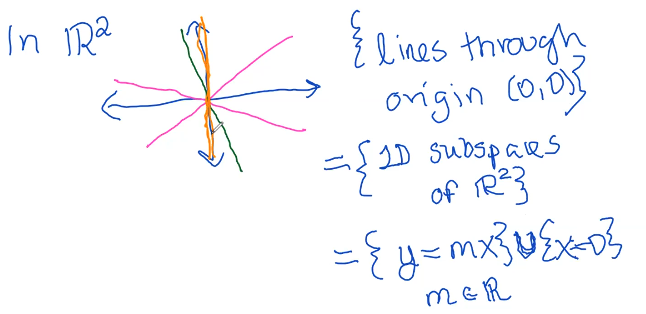 In ℝ²
{lines through
origin (0,0)}
= {1D subspaces
of ℝ²}
= {y=mx}∪{x=0}
m∈ℝ